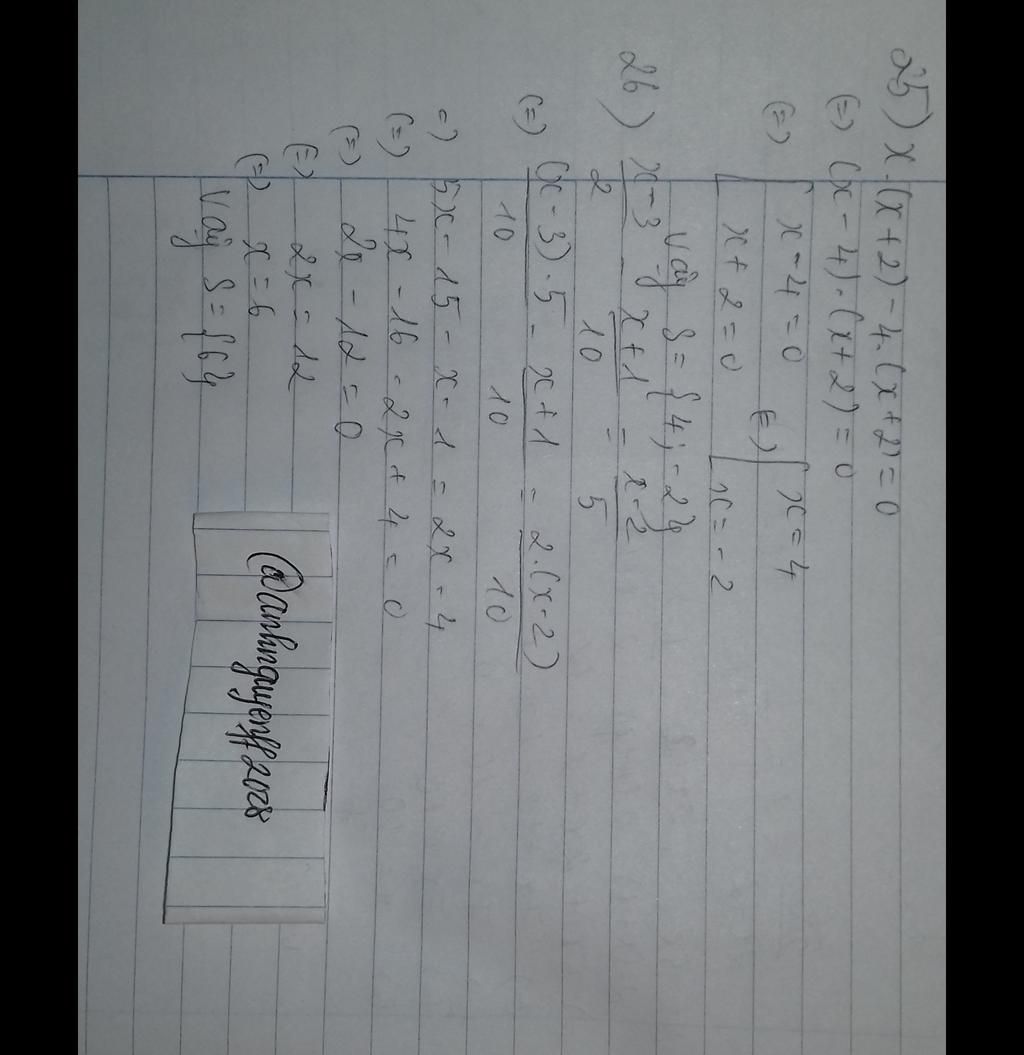 25) x.(x+2)-4.(x+2)=0
(=) (x-4).(x+2)=0
(=) [ x-4=0 (=) [ x=4
x+2=0 x=-2
Vậy S={4;-2}
26) x-3/2 - x+1/10 = x-2/5
(=) (x-3).5/10 - x+1/10 = 2.(x-2)/10
=) 5x-15-x-1=2x-4
(=) 4x-16-2x+4=0
(=) 2x-12=0
(=) 2x=12
(=) x=6
Vậy S={6}
@anhnguyenff2028